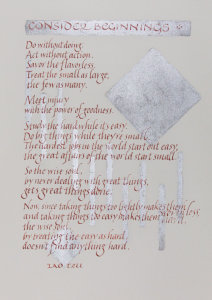 CONSIDER BEGINNINGS
Do without doing.
Act without action.
Savor the flavorless.
Treat the small as large,
the few as many.
Meet injury
with the power of goodness.
Study the hard while it's easy.
Do big things while they're small.
The hardest jobs in the world start out easy,
the great affairs of the world start small.
So the wise soul,
by never dealing with great things,
gets great things done.
Now, since taking things too lightly makes them worthless,
and taking things too easy makes them hard,
the wise soul,
by treating the easy as hard,
doesn't find anything hard.